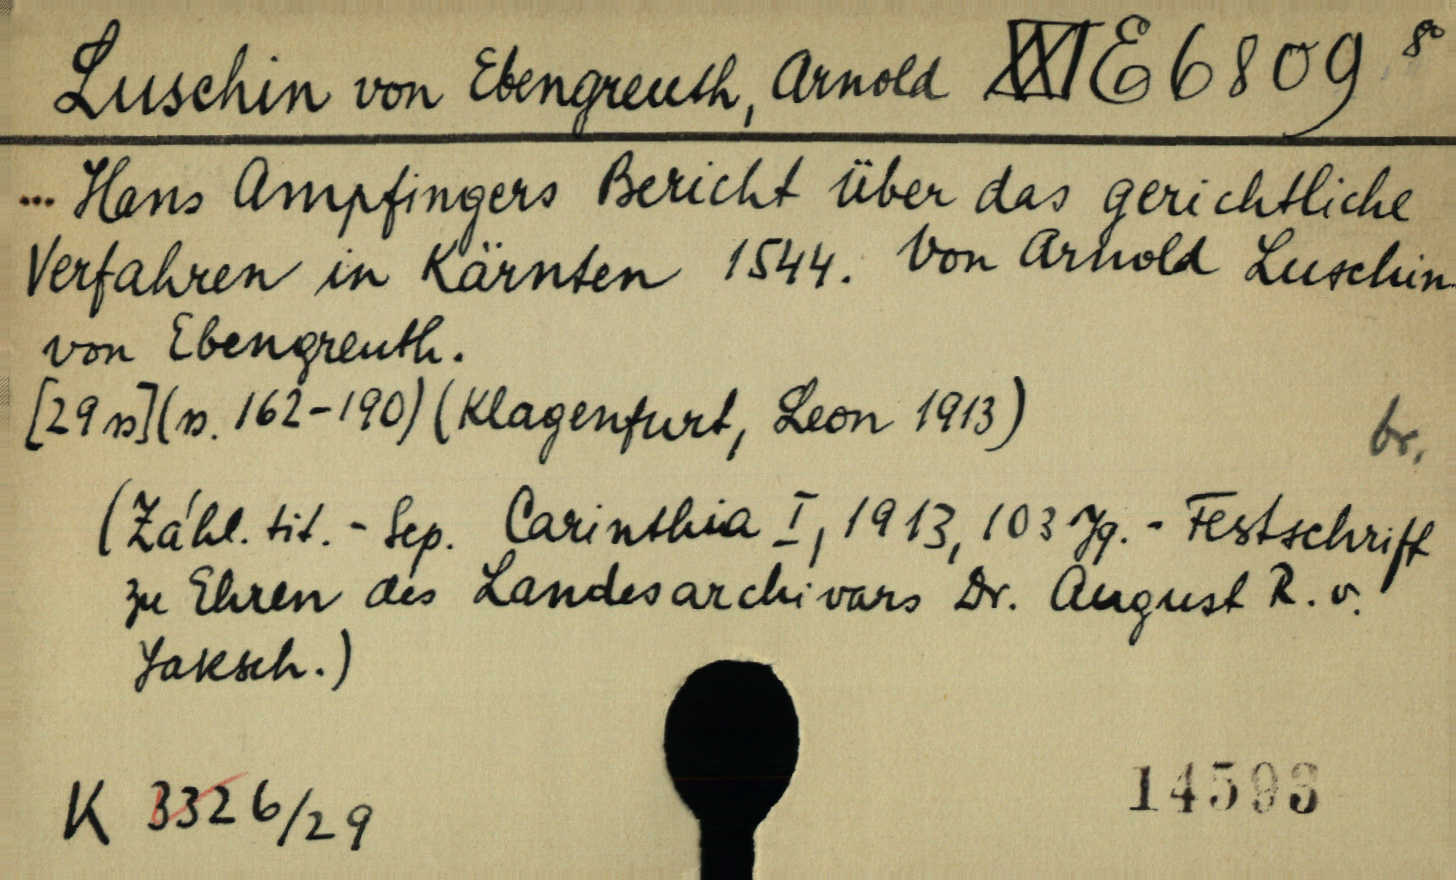 Luschin von Ebengreuth, Arnold XXI E 6809 8°
... Hans Ampfingers Bericht über das gerichtliche
Verfahren in Kärnten 1544. Von Arnold Luschin
von Ebengreuth.
[29 s] (s. 162-190) (Klagenfurt, Leon 1913)
br.
(Záhl. tit. - Sep. Carinthia I, 1913, 103 Jg. - Festschrift
zu Ehren des Landesarchivars Dr. August R. v.
Jaksch.)
14593
K 3326/29